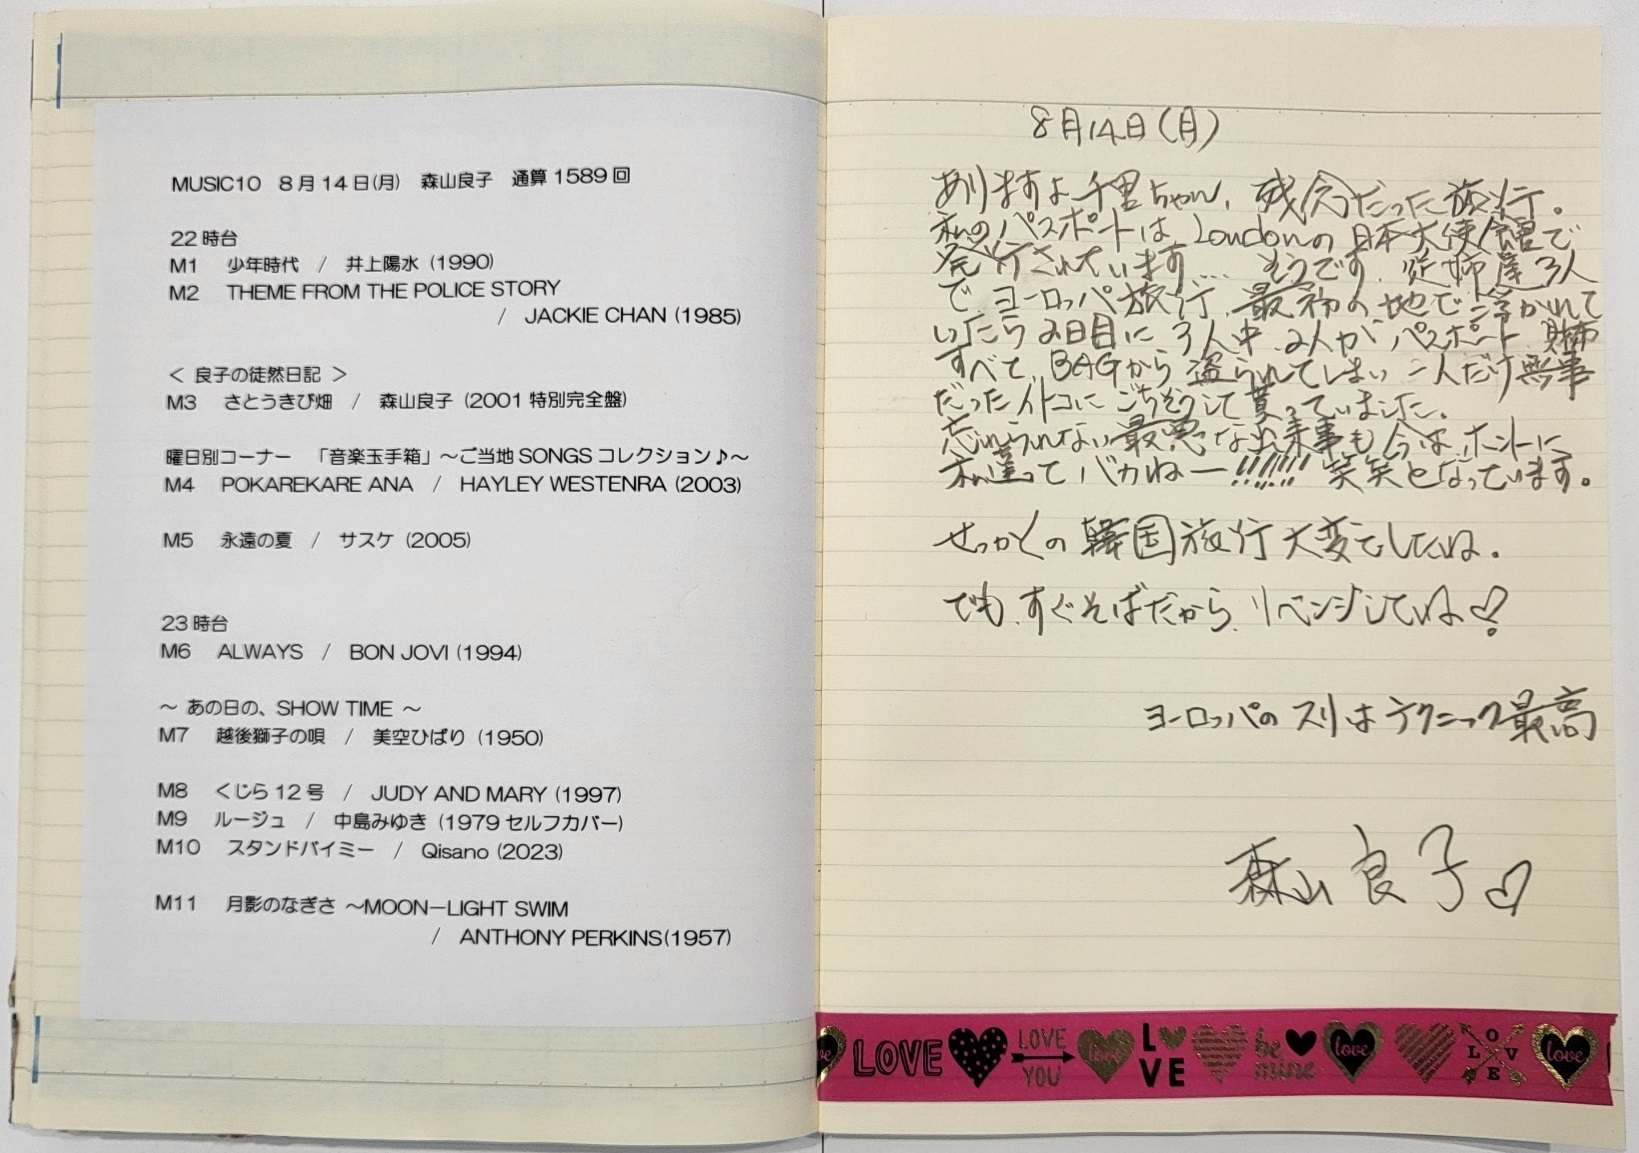 MUSIC10 8月14日(月) 森山良子 通算1589回
22時台
M1 少年時代 / 井上陽水 (1990)
M2 THEME FROM THE POLICE STORY
/ JACKIE CHAN (1985)
< 良子の徒然日記 >
M3 さとうきび畑 / 森山良子 (2001 特別完全盤)
曜日別コーナー 「音楽玉手箱」～ご当地SONGSコレクション♪～
M4 POKAREKARE ANA / HAYLEY WESTENRA (2003)
M5 永遠の夏 / サスケ (2005)
23時台
M6 ALWAYS / BON JOVI (1994)
～ あの日の、SHOW TIME ～
M7 越後獅子の唄 / 美空ひばり (1950)
M8 くじら12号 / JUDY AND MARY (1997)
M9 ルージュ / 中島みゆき (1979 セルフカバー)
M10 スタンドバイミー / Qisano (2023)
M11 月影のなぎさ ～MOON－LIGHT SWIM
/ ANTHONY PERKINS(1957)
8月14日(月)
ありますよ千里ちゃん、残念だった旅行。
私のパスポートは Londonの日本大使館で
発行されています… そうです。従姉達3人
でヨーロッパ旅行、最初の地で浮かれて
いたら2日目に3人中、2人がパスポート、財布
すべて、BAGから盗られてしまい 一人だけ無事
だったイトコに ごちそうして貰っていました。
忘れられない最悪な出来事も今は、ホントに
私達って バカねー!!!!!! 笑笑となっています。
せっかくの韓国旅行大変でしたね。
でも、すぐそばだから、リベンジしてね♡!
ヨーロッパのスリはテクニック最高
森山良子♡
LOVE LOVE YOU love LOVE be mine love LOVE love